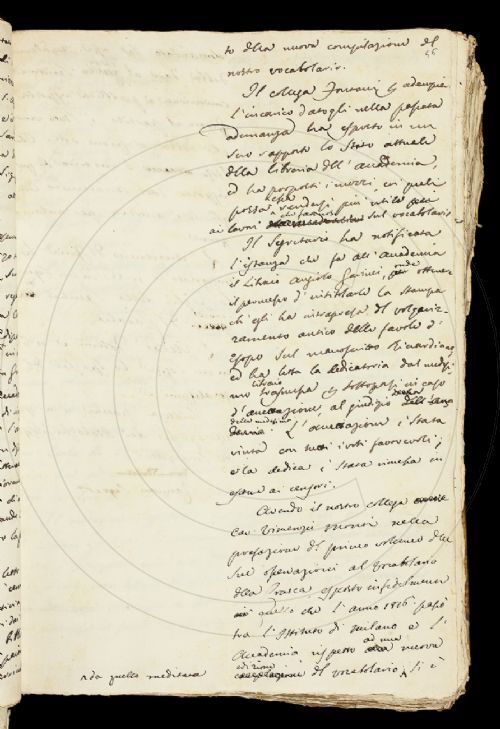 to della nuova compilazione del
nostro vocabolario.
Il collega Fontani ad adempire
l'incarico datogli nella passata
adunanza ha esposto in un
suo rapporto lo stato attuale
della libreria dell'Accademia,
ed ha proposti i mezzi, coi quali
possa essa rendersi più utile
ai lavori sul vocabolario
Il Segretario ha notificata
l'istanza che fa all'Accademia
il Libraio Angiolo Garinei, onde ottener
il permesso d'intitolarle la stampa
ch'egli ha intrapresa del volgariz-
zamento antico delle favole d'
Esopo sul manoscritto Riccardiano
ed ha letta la dedicatoria dal medesi-
mo libraio trasmessa sottoporsi in caso
d'accettazione al giudizio
della medesima L'accettazione è stata
vinta con tutti i voti favorevoli,
e la dedica è stata rimessa in
esame ai censori.
Avendo il nostro collega
cav. Vincenzio Monti nella
prefazione del primo volume delle
sue operazioni al vocabolario
della Crusca esposto infedelmente
quello che l'anno 1816. passò
tra l'Istituto di Milano e l'
Accademia rispetto ad una nuova
edizione del vocabolario, si è
da quello meditata